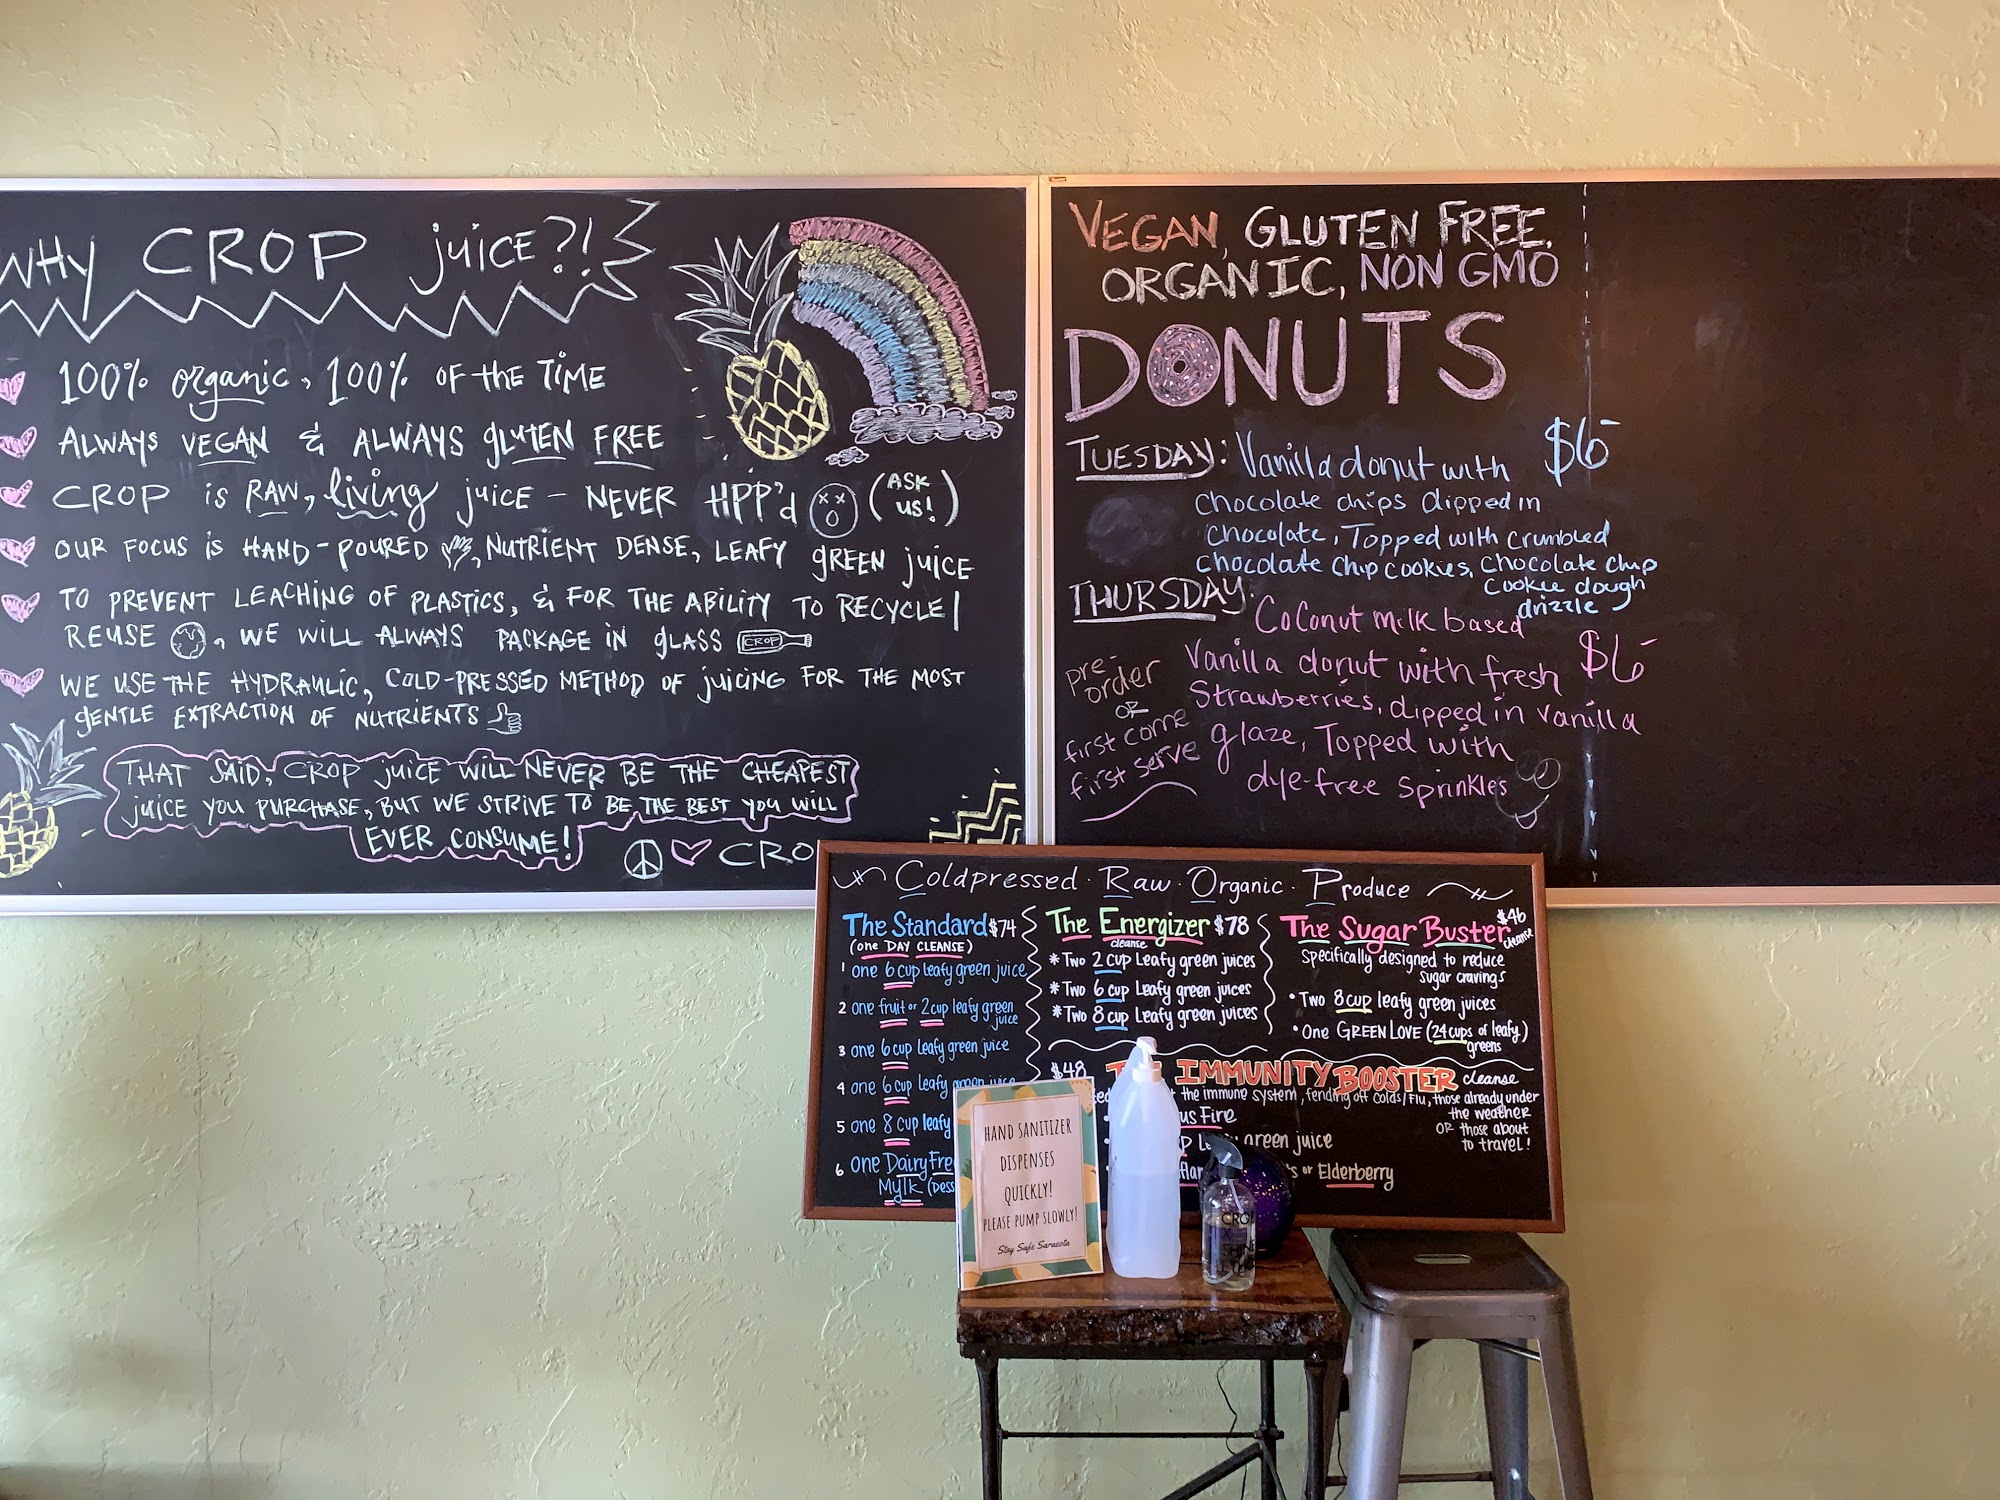 WHY CROP juice?!
100% organic, 100% OF the TIME
ALWAYS VEGAN & ALWAYS gLUTEN FREE
CROP is RAW, living juice - NEVER HPP'd (ASK us!)
OUR FOCUS is HAND-POURED, NUTRIENT DENSE, LEAFY gREEN juicE
TO PREVENT LEACHING OF PLASTICS, & FOR THE ABILITY TO RECYCLE/
REUSE, WE WILL ALWAYS PACKAGE IN gLASS CROP
WE USE THE HYDRAULIC, COLD-PRESSED METHOD OF juicING FOR THE MOST
gENTLE EXTRACTION OF NUTRIENTS
THAT SAID, CROP juicE WILL NEVER BE THE CHEAPEST
juicE YOU PURCHASE, BUT WE STRIVE TO BE THE BEST YOU WILL
EVER CONSUME!
CRO
VEGAN, GLUTEN FREE,
ORGANIC, NON GMO
DONUTS
TUESDAY: Vanilla donut with $6
Chocolate chips dipped in
Chocolate, Topped with crumbled
chocolate chip cookies, chocolate chip
cookie dough
drizzle
THURSDAY:
Coconut milk based
Vanilla donut with fresh $6
Strawberries, dipped in vanilla
glaze, Topped with
dye-free sprinkles
pre-
order
OR
first come
first serve
Coldpressed · Raw · Organic · Produce
The Standard $74
(one DAY CLEANSE)
1 one 6 cup leafy green juice
2 one fruit or 2 cup leafy green
juice
3 one 6 cup leafy green juice
4 one 6 cup leafy green juice
5 one 8 cup leafy
6 one Dairy Free
Mylk (Dess
The Energizer $78
cleanse
* Two 2 cup Leafy green juices
* Two 6 cup Leafy green juices
* Two 8 cup Leafy green juices
The Sugar Buster $46
cleanse
Specifically designed to reduce
sugar cravings
• Two 8 cup leafy green juices
• One GREEN LOVE (24 cups of leafy
greens)
$48 IMMUNITY BOOSTER cleanse
the immune system, fending off colds/flu, those already under
the weather
OR those about
to travel!
us Fire
green juice
or Elderberry
HAND SANITIZER
DISPENSES
QUICKLY!
PLEASE PUMP SLOWLY!
Stay Safe Sarasota
CROP
X
SHIN